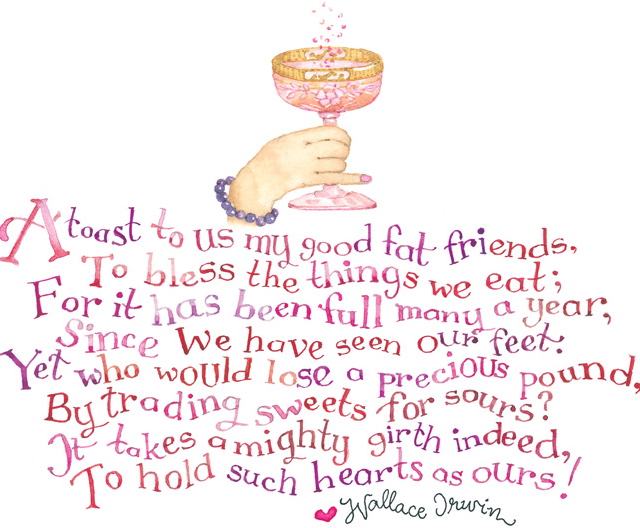 A toast to us my good fat friends,
To bless the things we eat;
For it has been full many a year,
Since We have seen our feet:
Yet who would lose a precious pound,
By trading sweets for sours?
It takes a mighty girth indeed,
To hold such hearts as ours!
Wallace Irwin